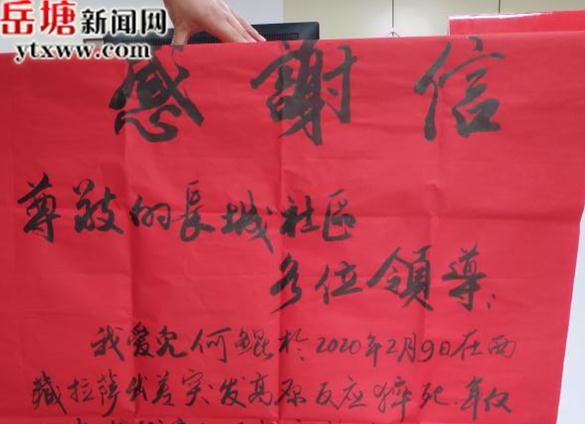 岳塘新闻网
ytxww.com
感謝信
尊敬的長城社区
各位領導：
我愛兒何鯤於2020年2月9日在西
藏拉萨出差突发高原反应猝死.年仅